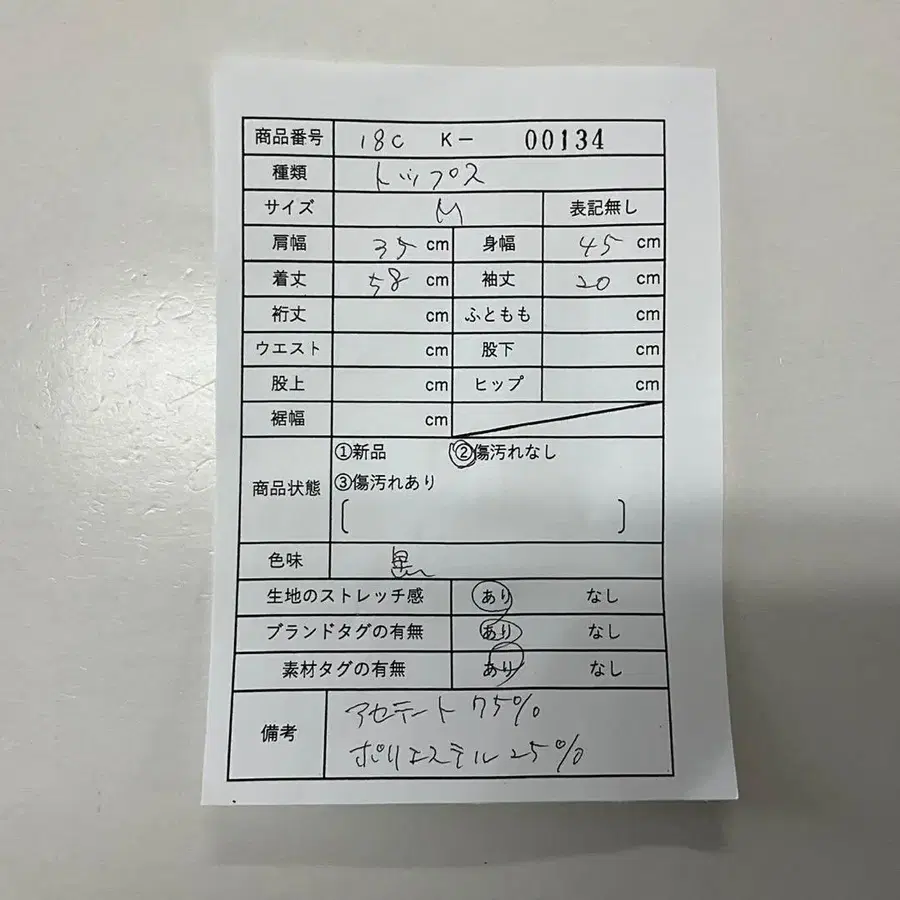 商品番号 18C K- 00134
種類 トップス
サイズ M 表記無し
肩幅 35 cm 身幅 45 cm
着丈 58 cm 袖丈 20 cm
裄丈 cm ふともも cm
ウエスト cm 股下 cm
股上 cm ヒップ cm
裾幅 cm
①新品 ②傷汚れなし
商品状態 ③傷汚れあり
[ ]
色味 黒
生地のストレッチ感 あり なし
ブランドタグの有無 あり なし
素材タグの有無 あり なし
備考 アセテート 75%
ポリエステル 25%